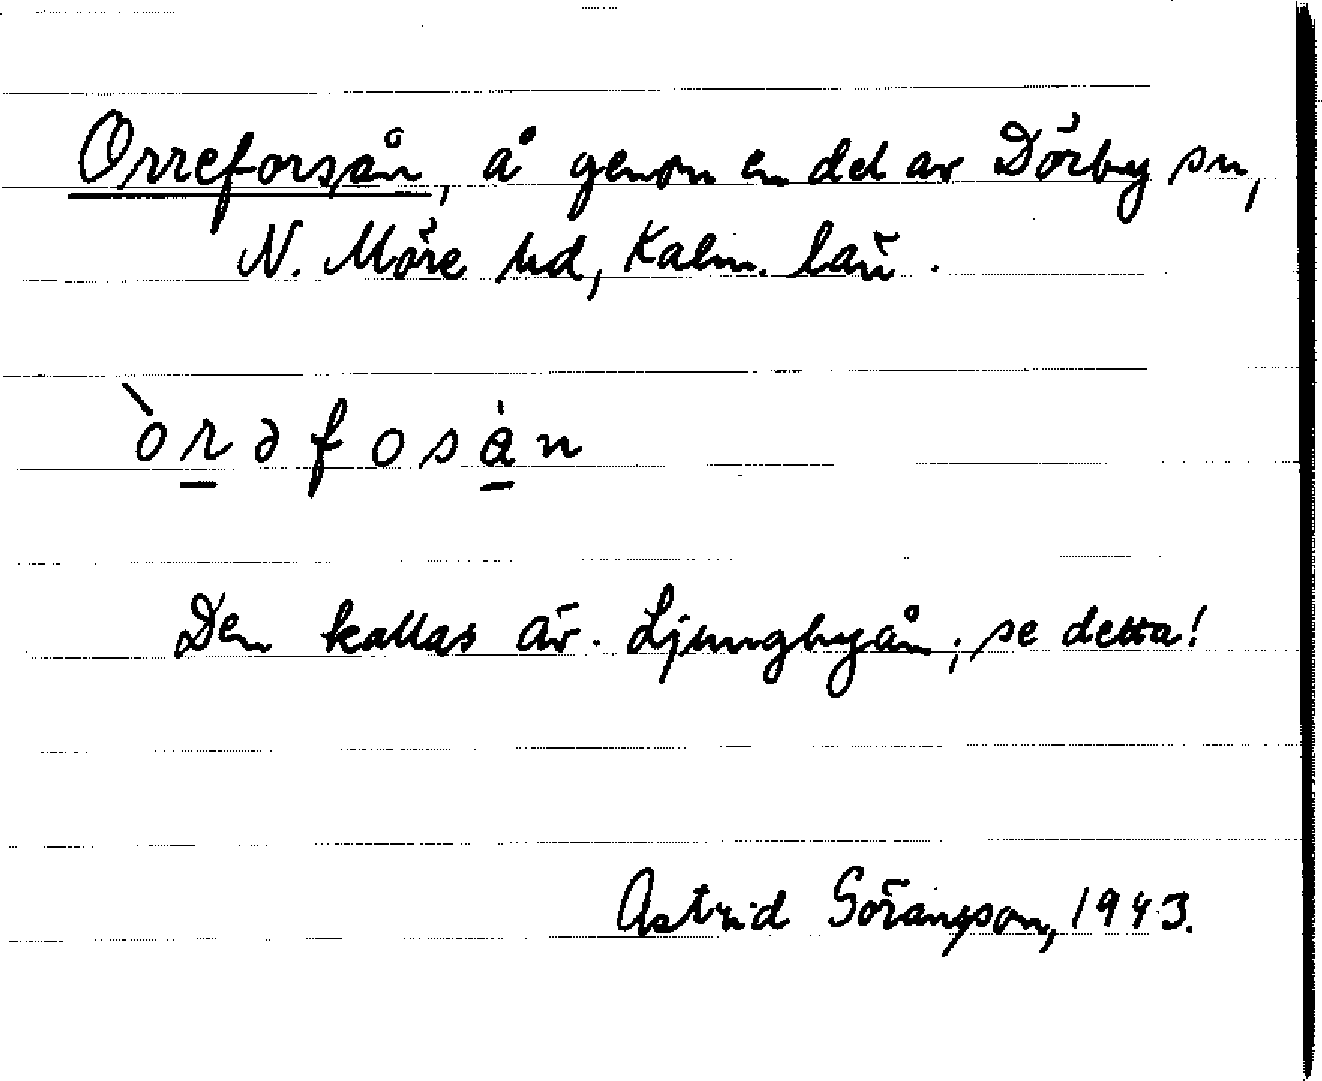 Orreforsån, å genom en del av Dörby sn,
N. Möre hd, Kalm. län.
òrəfosån
Den kallas äv. Ljungbyån; se detta!
Astrid Göransson, 1943.